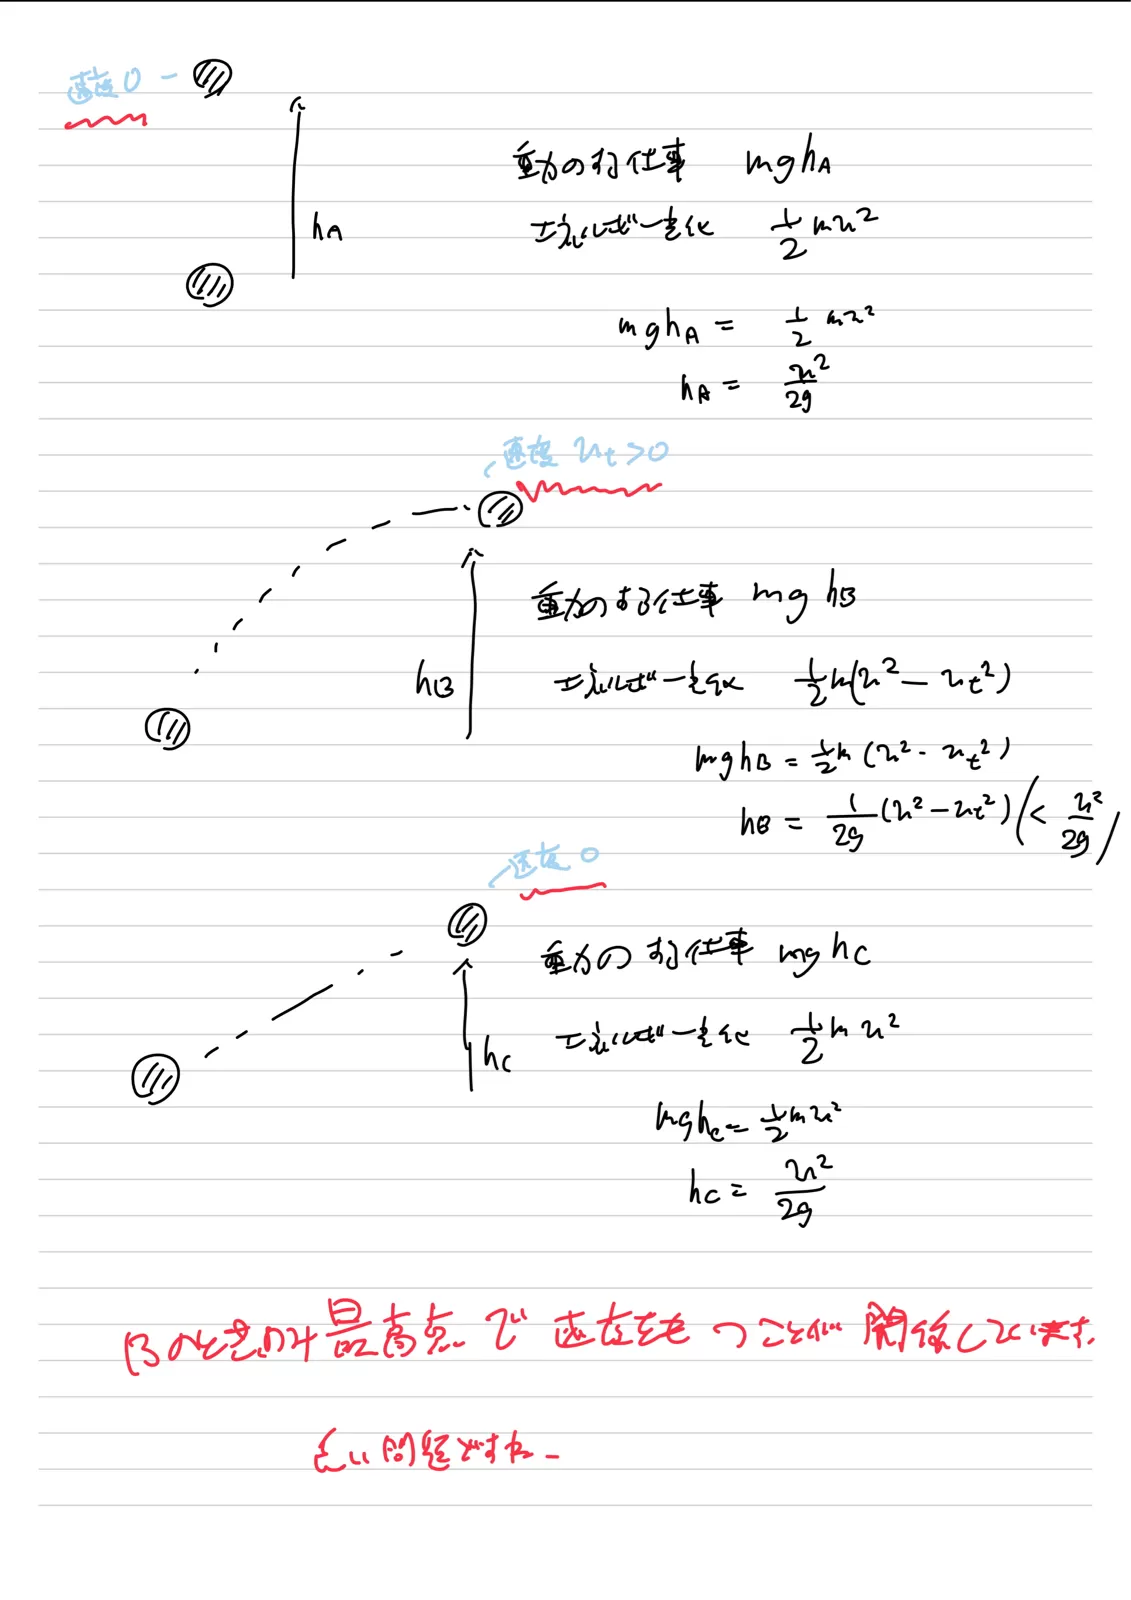 速度0
重力のする仕事 mghA
hA
エネルギー変化 1/2 mu²
mghA = 1/2 mu²
hA = u²/2g
速度 ut>0
重力のする仕事 mg hB
hB
エネルギー変化 1/2 m(u² - ut²)
mghB = 1/2 m (u² - ut²)
hB = 1/2g (u² - ut²) (< u²/2g)
速度 0
重力の する仕事 mghc
hc
エネルギー変化 1/2 m u²
mghc = 1/2 mu²
hc = u²/2g
Bのときのみ最高点で速度をもつことが関係しています.
良い問題ですね_